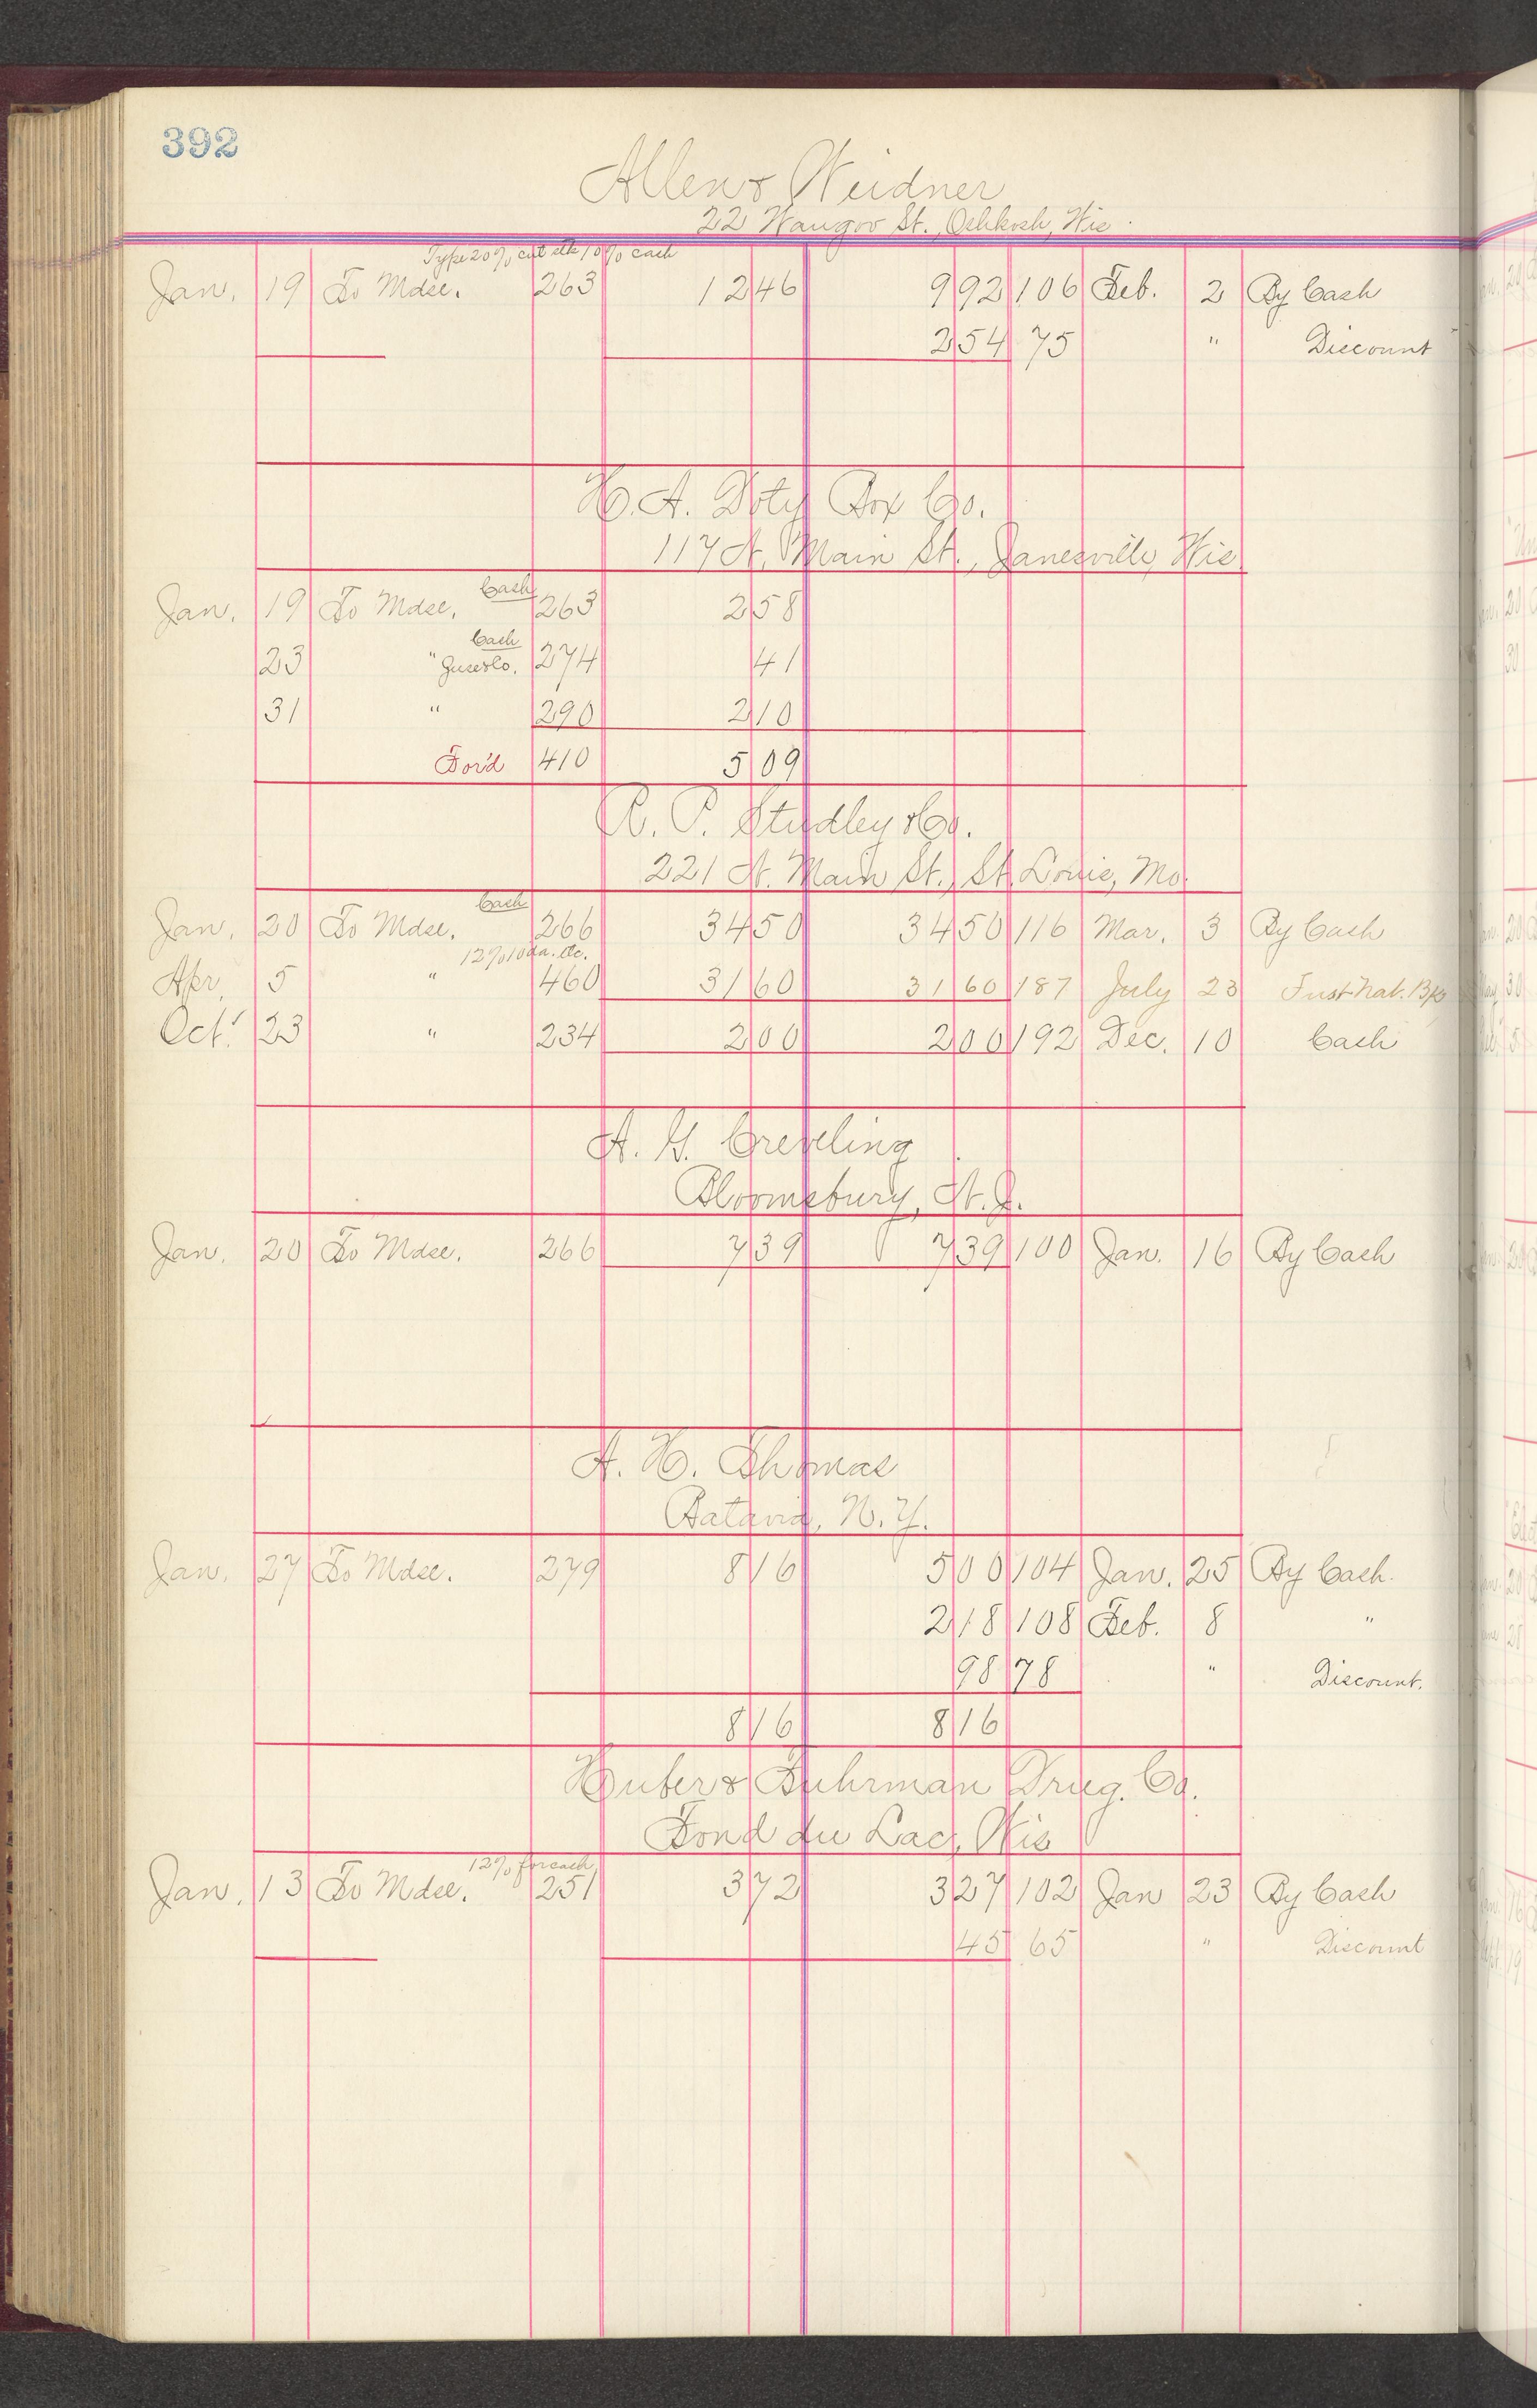 392
Allen & Weidner
22 Waugoo St., Oshkosh, Wis.
Type 20% cut etc 10% cash
Jan. 19 To Mdse. 263 12 46 9 92 106 Feb. 2 By Cash
2 54 75 " Discount
H. A. Doty Box Co.
117 N. Main St., Janesville, Wis
Cash
Jan. 19 To Mdse. 263 2 58
Cash
23 " 274 41
31 " 290 2 10
For'd 410 5 09
R. P. Studley & Co.
221 N. Main St., St. Louis, Mo.
Cash
Jan. 20 To Mdse. 266 34 50 34 50 116 Mar. 3 By Cash
12% 10 da. Dc.
Apr. 5 " 460 31 60 31 60 187 July 23 First Nat. Bk
Oct. 23 " 234 2 00 2 00 192 Dec. 10 Cash
A. G. Creveling
Bloomsbury, N. J.
Jan. 20 To Mdse. 266 7 39 7 39 100 Jan. 16 By Cash
A. H. Thomas
Batavia, N. Y.
Jan. 27 To Mdse. 279 8 16 5 00 104 Jan. 25 By Cash.
2 18 108 Feb. 8 "
98 78 " Discount.
8 16 8 16
Huber & Fuhrman Drug. Co.
Fond du Lac, Wis
12% for cash
Jan. 13 To Mdse. 251 3 72 3 27 102 Jan 23 By Cash
45 65 " Discount